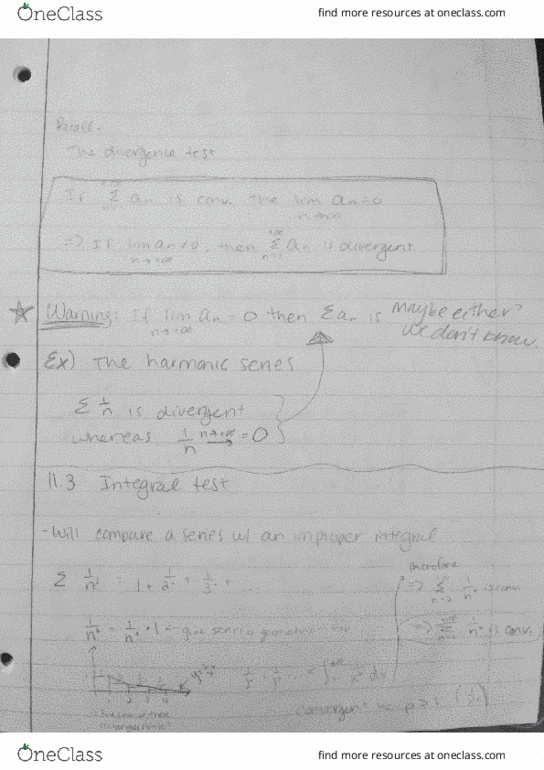 OneClass
find more resources at oneclass.com
Recall.
The divergence test
If Σ an is conv. The lim an=0
n→∞
=> If lim an≠0, then Σ an is divergent.
n→+∞
Warning: If lim an = 0 then Σan is maybe either?
n→+∞
we don't know.
Ex) The harmonic series
Σ 1/n is divergent
whereas 1/n n→+∞ = 0
11.3 Integral test
-Will compare a series w/ an improper integral
therefore
Σ 1/n² = 1 + 1/2² + 1/3² + ...
=> Σ 1/n² is conv.
n=2
1/n² = 1/n² · 1 ← give series a geometric
=> Σ 1/n² is conv.
convergent bc p>1
OneClass
find more resources at oneclass.com